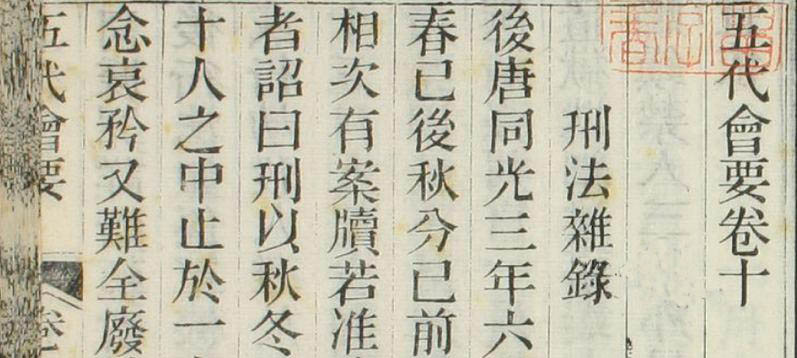 五代會要卷十
刑法雜錄
後唐同光三年六
春已後秋分已前
相次有案牘若准
者詔曰刑以秋冬
十人之中止於一
念哀矜又難全廢
五代會要